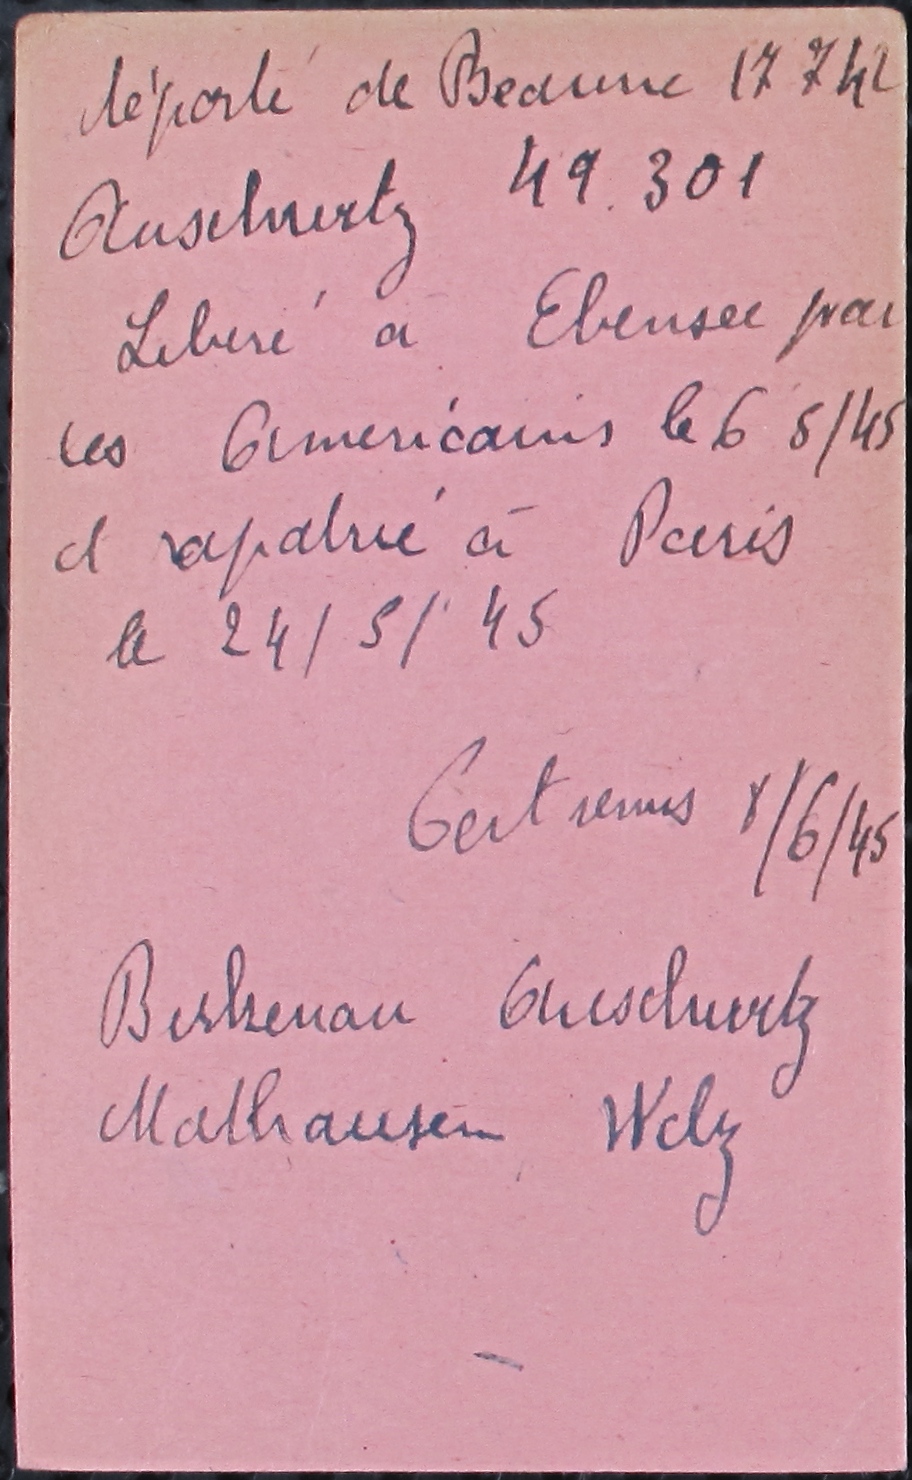 déporté de Beaune 17 7 42
Auschwitz 49.301
Libéré à Ebensee par
les Américains le 6 5/45
et rapatrié à Paris
le 24/5/45
Cert remis 8/6/45
Birkenau Auschwitz
Mathausen Welz